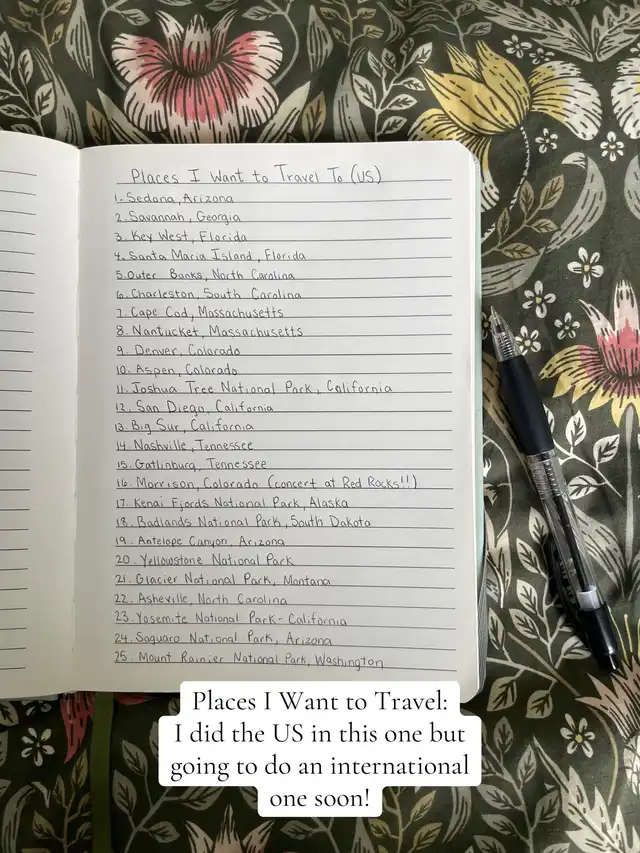 Places I Want to Travel To (US)
1. Sedona, Arizona
2. Savannah, Georgia
3. Key West, Florida
4. Santa Maria Island, Florida
5. Outer Banks, North Carolina
6. Charleston, South Carolina
7. Cape Cod, Massachusetts
8. Nantucket, Massachusetts
9. Denver, Colorado
10. Aspen, Colorado
11. Joshua Tree National Park, California
12. San Diego, California
13. Big Sur, California
14. Nashville, Tennessee
15. Gatlinburg, Tennessee
16. Morrison, Colorado (concert at Red Rocks!!)
17. Kenai Fjords National Park, Alaska
18. Badlands National Park, South Dakota
19. Antelope Canyon, Arizona
20. Yellowstone National Park
21. Glacier National Park, Montana
22. Asheville, North Carolina
23. Yosemite National Park - California
24. Saguaro National Park, Arizona
25. Mount Rainier National Park, Washington
Places I Want to Travel:
I did the US in this one but
going to do an international
one soon!